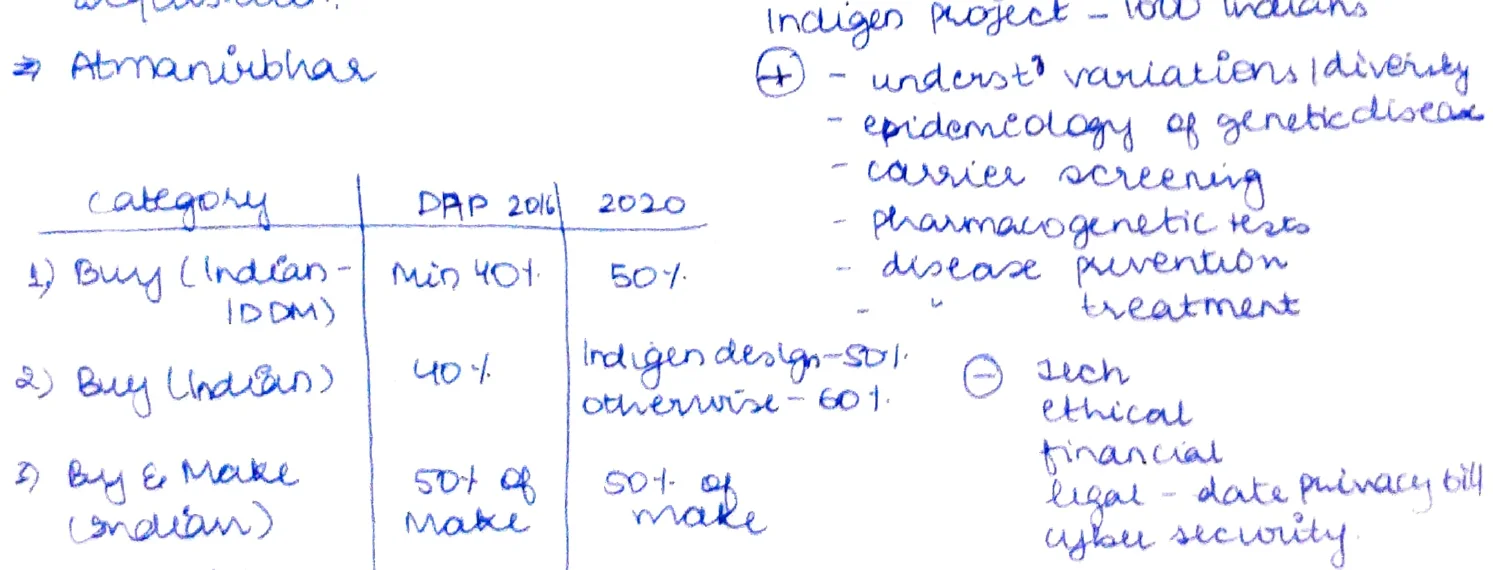 ⇒ Atmanirbhar
category | DAP 2016 | 2020
1) Buy (Indian- | Min 40% | 50%
IDDM)
2) Buy (Indian) | 40% | Indigen design-50%
otherwise - 60%
3) Buy & Make | 50% of | 50% of
(Indian) | Make | make
Indigen project - 1000 Indians
(+) - underst⁹ variations/diversity
- epidemiology of genetic disease
- carrier screening
- pharmacogenetic tests
- disease prevention
- " treatment
(-) tech
ethical
financial
legal - data privacy bill
cyber security.